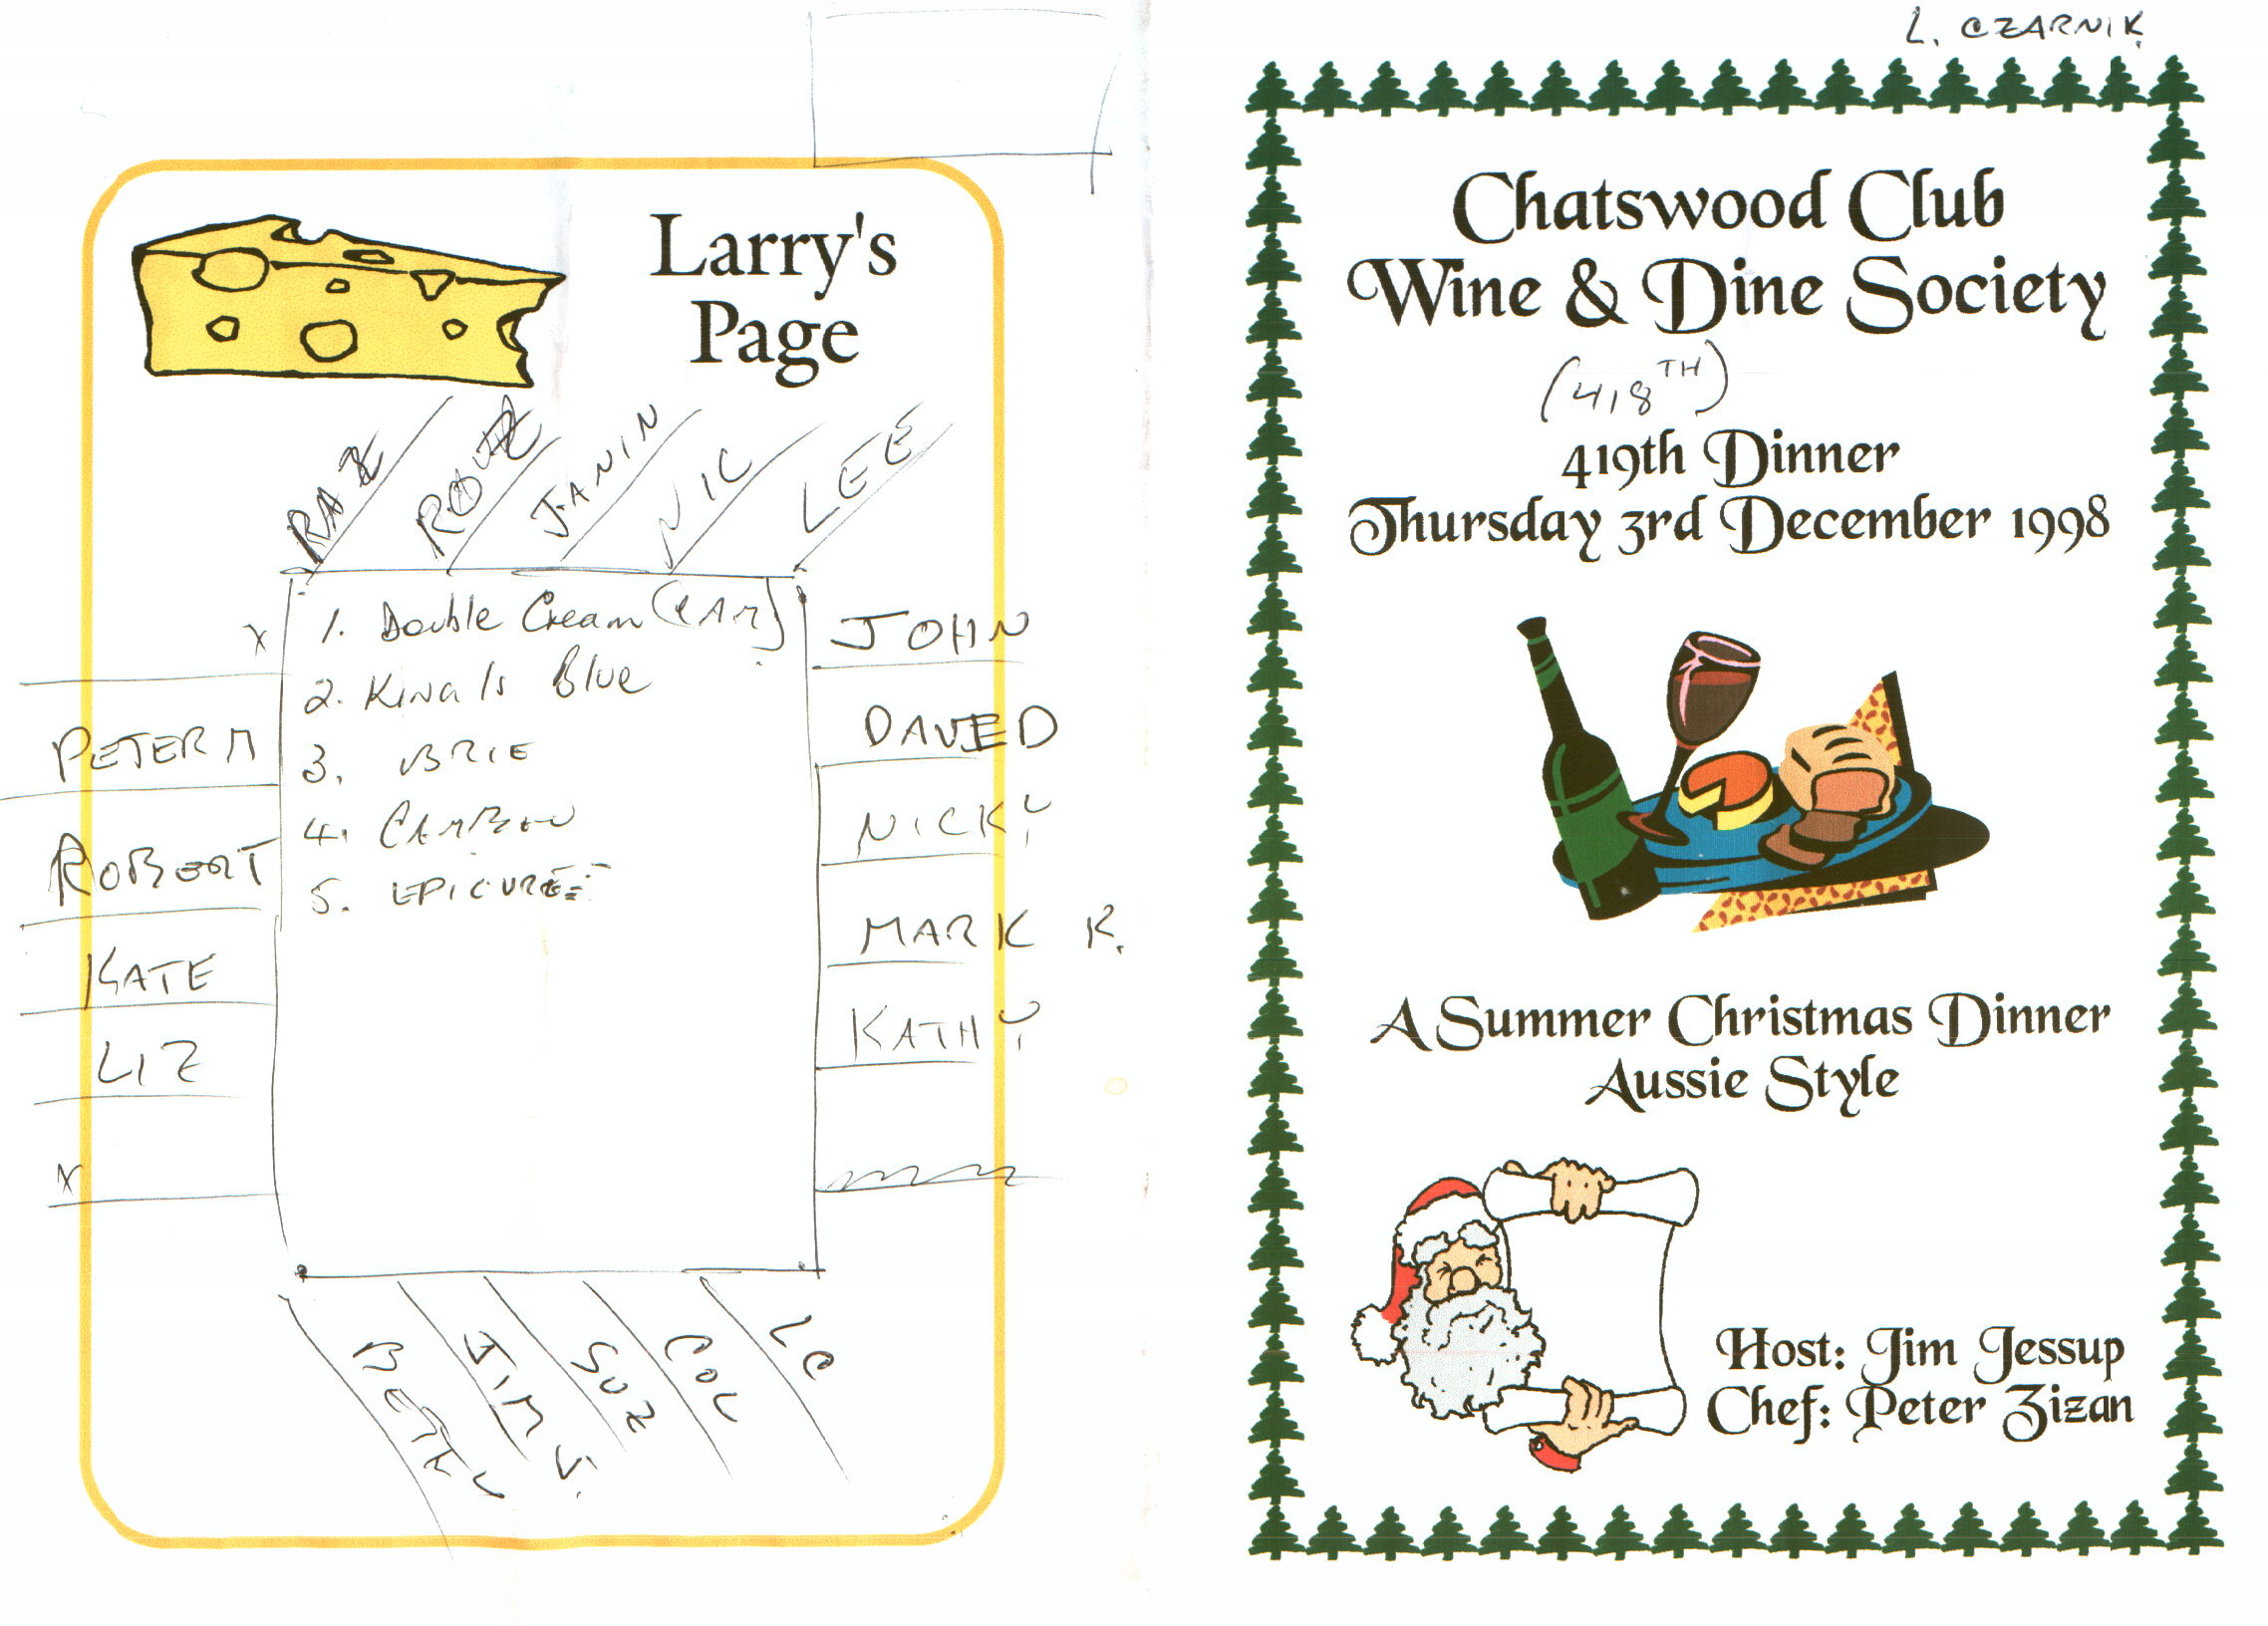 Larry's
Page
JANIN
NIC
LEE
1. Double Cream
2. King Is Blue
3. BRIE
4.
5. EPICUREE
PETER M
ROBERT
KATE
LIZ
x
x
JOHN
DAVED
NICKY
MARK K.
KATHY
JIM J.
SUZ
COL
LC
L. CZARNIK
Chatswood Club
Wine & Dine Society
(418TH)
419th Dinner
Thursday 3rd December 1998
A Summer Christmas Dinner
Aussie Style
Host: Jim Jessup
Chef: Peter Zizan